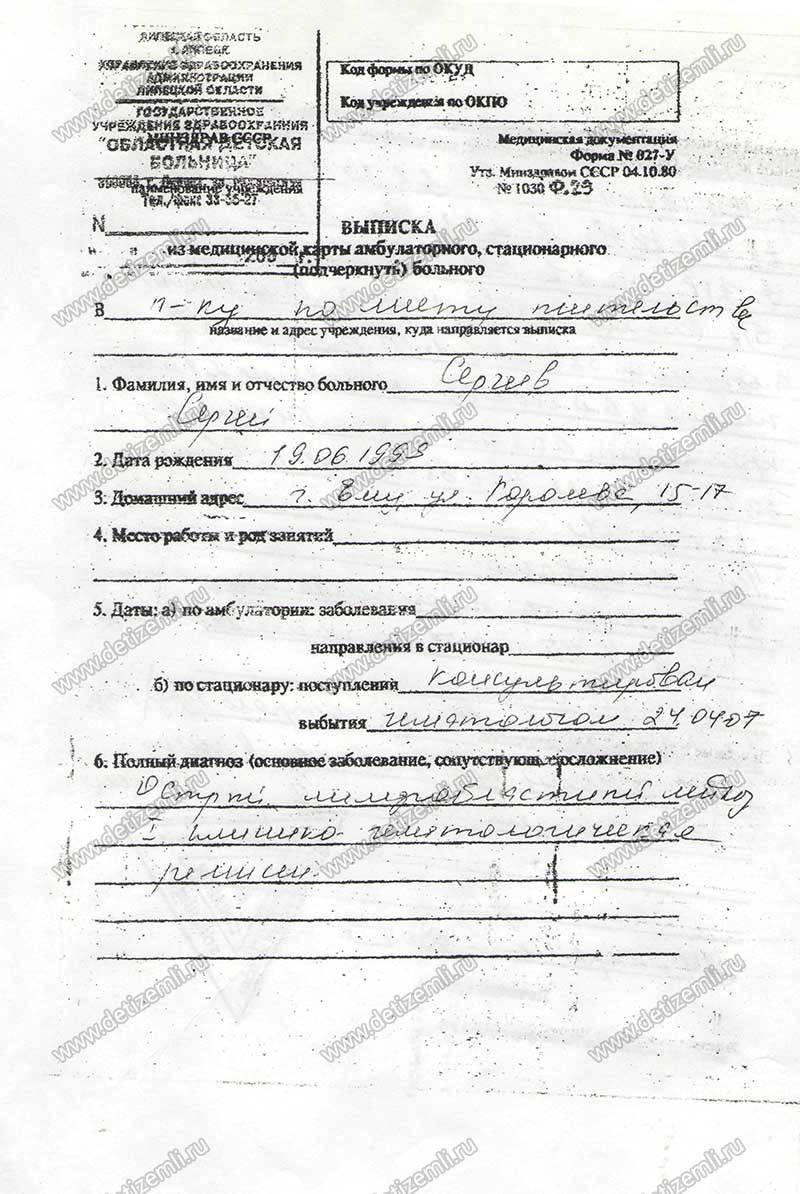 ЛИПЕЦКАЯ ОБЛАСТЬ
г. ЛИПЕЦК
УПРАВЛЕНИЕ ЗДРАВООХРАНЕНИЯ
АДМИНИСТРАЦИИ
ЛИПЕЦКОЙ ОБЛАСТИ
ГОСУДАРСТВЕННОЕ
УЧРЕЖДЕНИЕ ЗДРАВООХРАНИЯ
МИНЗДРАВ СССР
"ОБЛАСТНАЯ ДЕТСКАЯ
БОЛЬНИЦА"
наименование учреждения
Тел./факс 33-35-27
N
Код формы по ОКУД
Код учреждения по ОКПО
Медицинская документация
Форма № 027-У
Утв. Минздравом СССР 04.10.80
№ 1030 Ф.29
ВЫПИСКА
из медицинской карты амбулаторного, стационарного
(подчеркнуть) больного
В п-ку по месту жительства
название и адрес учреждения, куда направляется выписка
1. Фамилия, имя и отчество больного Сергеев
Сергей
2. Дата рождения 19.06.1993
3. Домашний адрес г. ул. Королева, 15-17
4. Место работы и род занятий
5. Даты: а) по амбулатории: заболевания
направления в стационар
б) по стационару: поступлений консультирован
выбытия гематологом 24.04.07
6. Полный диагноз (основное заболевание, сопутствующ. осложнение)
1) Острый лимфобластный лейкоз
I клинико-гематологическая
ремиссия.
www.detizemli.ru